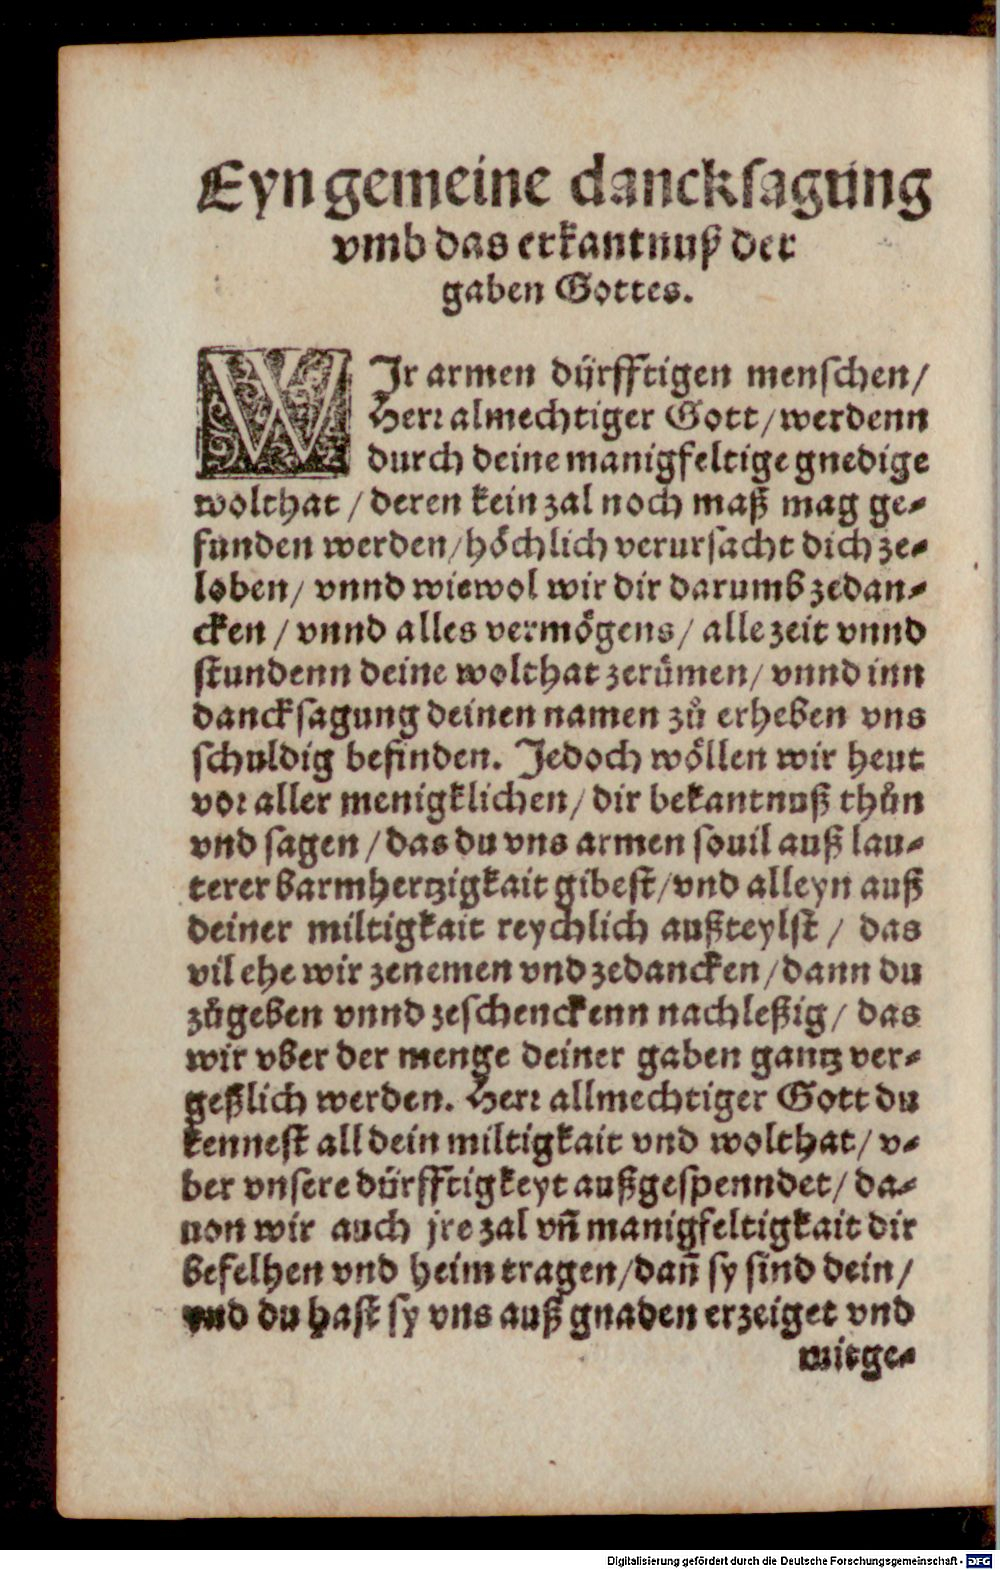 Eyn gemeine dancksagung
vmb das erkantnuß der
gaben Gottes.
WJr armen dürfftigen menschen/
Herr almechtiger Gott/werdenn
durch deine manigfeltige gnedige
wolthat/deren kein zal noch maß mag ge-
funden werden/höchlich verursacht dich ze-
loben/vnnd wiewol wir dir darumb zedan-
cken/vnnd alles vermögens/alle zeit vnnd
stundenn deine wolthat zerümen/vnnd inn
dancksagung deinen namen zů erheben vns
schuldig befinden. Jedoch wöllen wir heut
vor aller menigklichen/dir bekantnuß thůn
vnd sagen/das du vns armen souil auß lau-
terer barmhertzigkait gibest/vnd alleyn auß
deiner miltigkait reychlich außteylst/das
vil ehe wir zenemen vnd zedancken/dann du
zůgeben vnnd zeschenckenn nachleßig/das
wir vber der menge deiner gaben gantz ver-
geßlich werden. Herr allmechtiger Gott du
kennest all dein miltigkait vnd wolthat/v-
ber vnsere dürfftigkeyt außgespenndet/da-
uon wir auch jre zal vñ manigfeltigkait dir
befelhen vnd heim tragen/dañ sy sind dein/
vnd du hast sy vns auß gnaden erzeiget vnd
mitge-
Digitalisierung gefördert durch die Deutsche Forschungsgemeinschaft - DFG